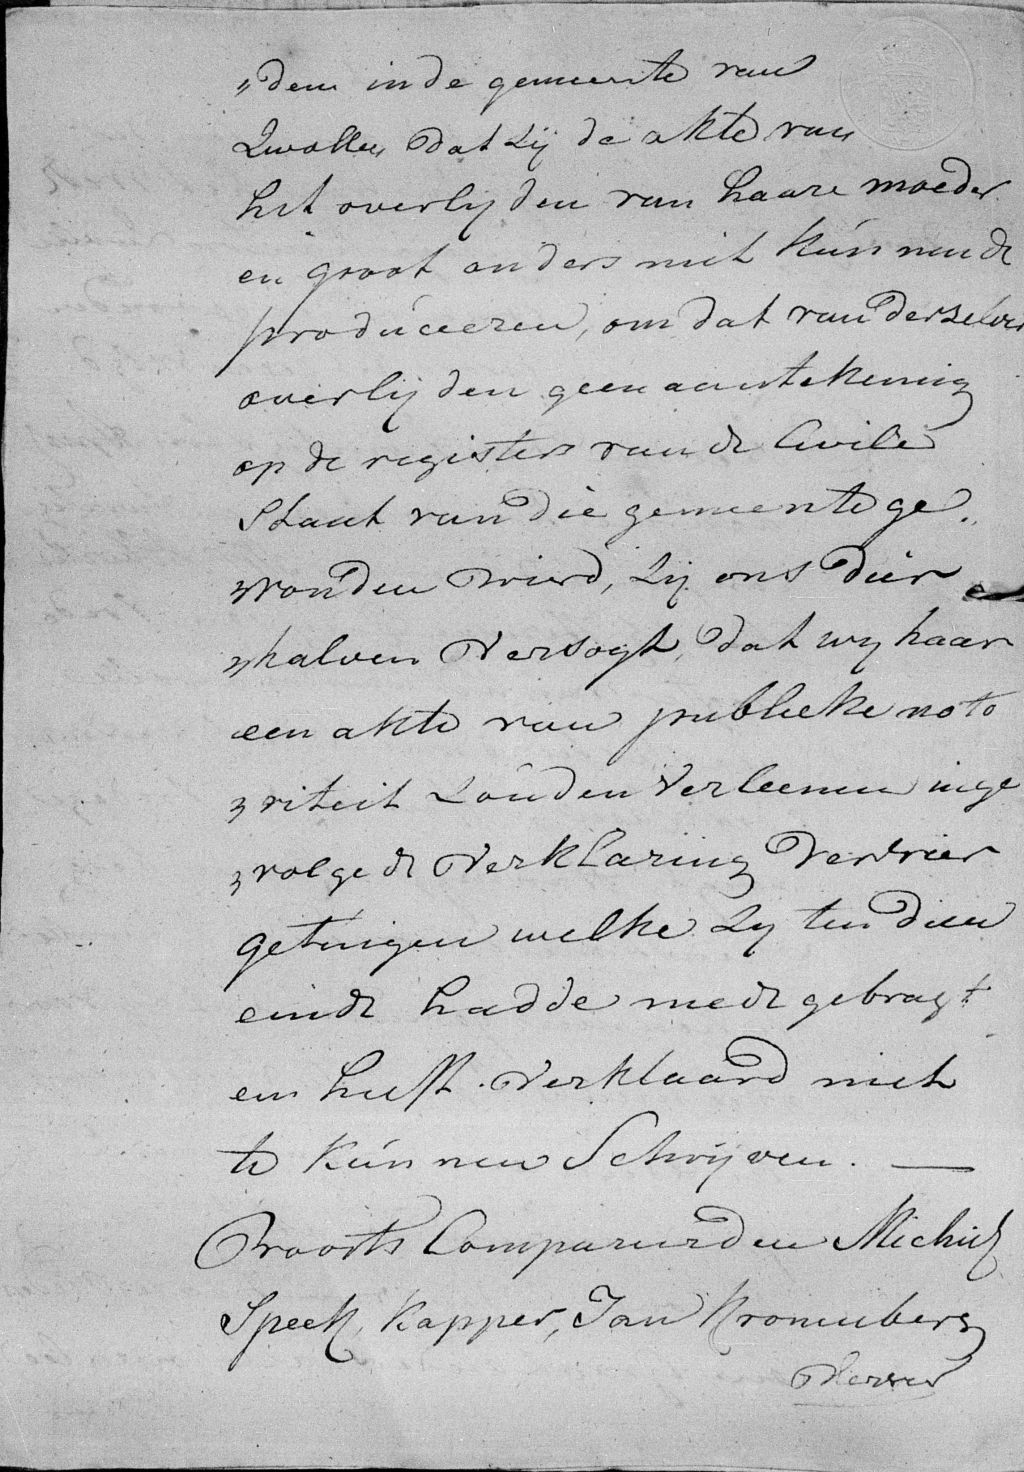 "den in de gemeente van
Zwolle, dat zij de akte van
het overlijden van haare moeder
en groot ouders niet kunnende
produceeren, om dat van derzelver
overlijden geen aantekening
op de registers van de Civile
Staat van die gemeente ge.
"vonden wierd, zij ons dier
"halven versogt, dat wij haar
een akte van publieke noto
"riteit zouden verleenen inge
"volge de verklaring der vier
getuigen welke zij ten dien
einde hadde mede gebragt
en heeft verklaard niet
te kunnen Schrijven. —
Voorts Compareerden Michiel
Speek, Kapper, Jan Kronenberg
Verver